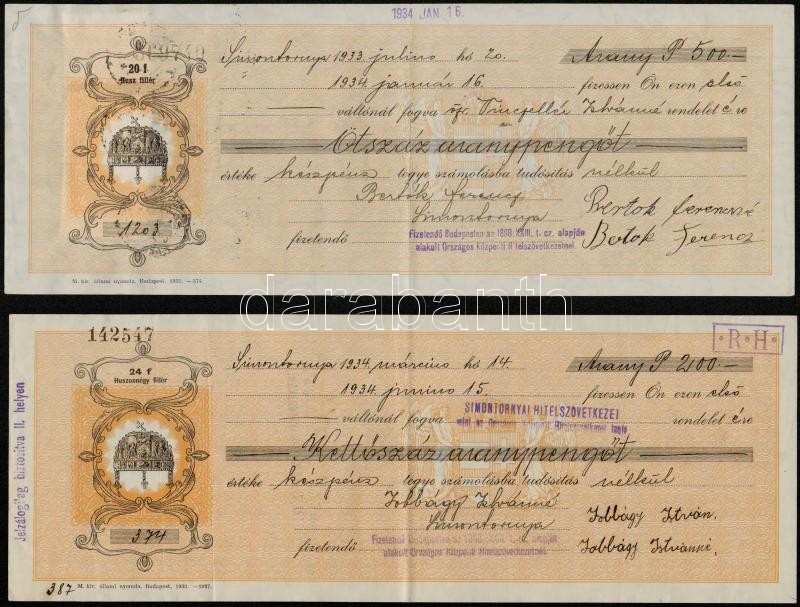 1934 JAN 16.
20 f
Husz fillér
Simontornya 1933. julius hó 20. Arany P 500.—
1934. január 16. fizessen Ön ezen első
váltónál fogva özv. Vinczellér Istvánné rendelet é re
Ötszáz aranypengőt
értéke készpénz tegye számolásba tudósitás nélkül
Bertók Ferencz
Simontornya
Bertok Ferencné
Bertok Ferencz
1203
fizetendő
Fizetendő Budapesten az 1898. XXIII. t. cz. alapján
alakult Országos Központi Hitelszövetkezetnél.
M. kir. állami nyomda. Budapest, 1933. — 574.
darabanth
142547
·R·H·
24 f
Huszonnégy fillér
Simontornya 1934. március hó 14. Arany P 200.—
1934. junius 15. fizessen Ön ezen első
SIMONTORNYAI HITELSZÖVETKEZET
mint az Országos Központi Hitelszövetkezet tagja
váltónál fogva rendelet é re
Kettőszáz aranypengőt
értéke készpénz tegye számolásba tudósitás nélkül
Jobbágy Istvánné
Simontornya
Jobbágy István.
Jobbágy Istvánné.
374
fizetendő
Fizetendő Budapesten az 1898. XXIII. t. cz. alapján
alakult Országos Központi Hitelszövetkezetnél.
387 M. kir. állami nyomda. Budapest, 1933. — 1937.
Jelzálogilag biztosítva II. helyen